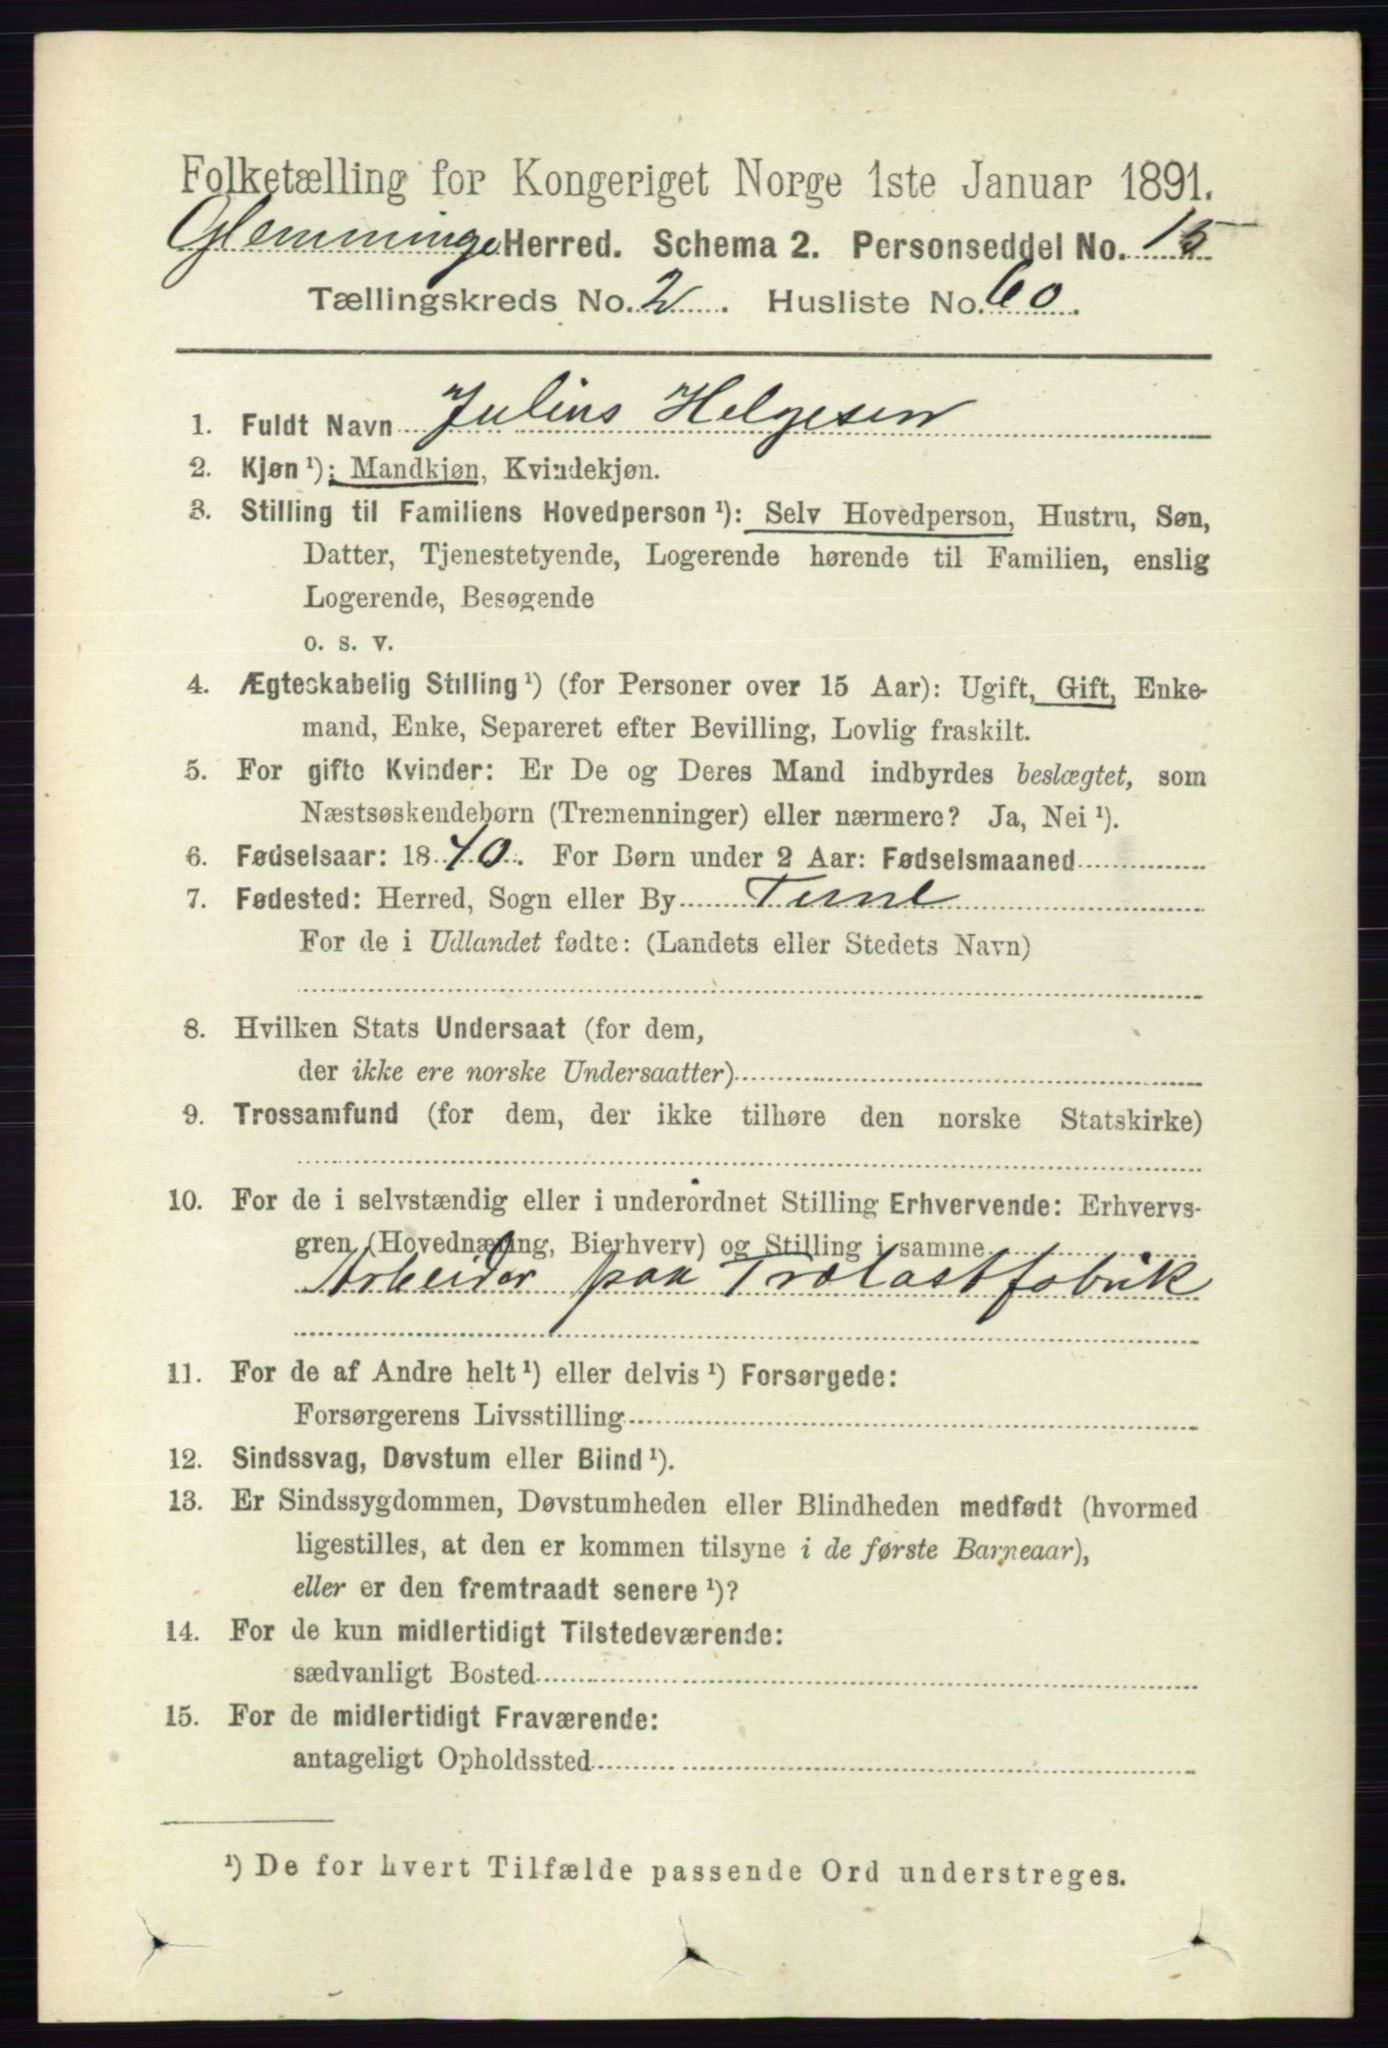 Folketælling for Kongeriget Norge 1ste Januar 1891.
Glemminge Herred. Schema 2. Personseddel No. 15
Tællingskreds No. 2. Husliste No. 60.
1. Fuldt Navn Julius Helgesen
2. Kjøn ¹): Mandkjøn, Kvindekjøn.
3. Stilling til Familiens Hovedperson ¹): Selv Hovedperson, Hustru, Søn,
Datter, Tjenestetyende, Logerende hørende til Familien, enslig
Logerende, Besøgende
o. s. v.
4. Ægteskabelig Stilling ¹) (for Personer over 15 Aar): Ugift, Gift, Enke-
mand, Enke, Separeret efter Bevilling, Lovlig fraskilt.
5. For gifte Kvinder: Er De og Deres Mand indbyrdes beslægtet, som
Næstsøskendebørn (Tremenninger) eller nærmere? Ja, Nei ¹).
6. Fødselsaar: 1840. For Børn under 2 Aar: Fødselsmaaned
7. Fødested: Herred, Sogn eller By Tune
For de i Udlandet fødte: (Landets eller Stedets Navn)
8. Hvilken Stats Undersaat (for dem,
der ikke ere norske Undersaatter)
9. Trossamfund (for dem, der ikke tilhøre den norske Statskirke)
10. For de i selvstændig eller i underordnet Stilling Erhvervende: Erhvervs-
gren (Hovednæring, Bierhverv) og Stilling i samme
Arbeider paa Trælastfabrik
11. For de af Andre helt ¹) eller delvis ¹) Forsørgede:
Forsørgerens Livsstilling
12. Sindssvag, Døvstum eller Blind ¹).
13. Er Sindssygdommen, Døvstumheden eller Blindheden medfødt (hvormed
ligestilles, at den er kommen tilsyne i de første Barneaar),
eller er den fremtraadt senere ¹)?
14. For de kun midlertidigt Tilstedeværende:
sædvanligt Bosted
15. For de midlertidigt Fraværende:
antageligt Opholdssted
¹) De for hvert Tilfælde passende Ord understreges.